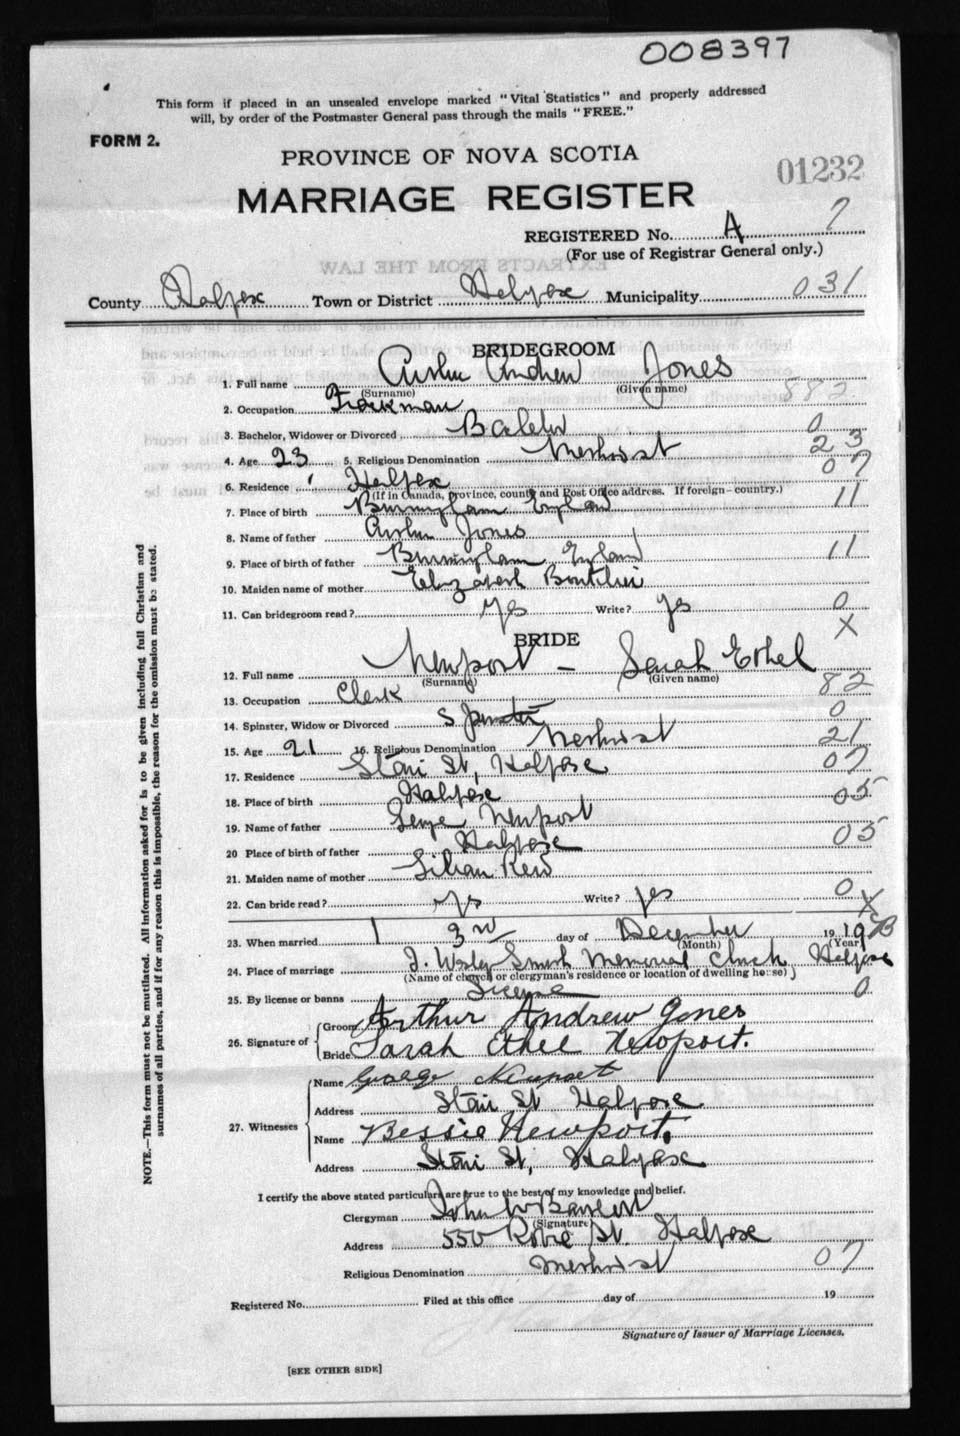 008397
This form if placed in an unsealed envelope marked "Vital Statistics" and properly addressed
will, by order of the Postmaster General pass through the mails "FREE."
FORM 2.
PROVINCE OF NOVA SCOTIA
01232
MARRIAGE REGISTER
REGISTERED No. A 7
(For use of Registrar General only.)
County Halifax Town or District Halifax Municipality 031
BRIDEGROOM
1. Full name Arthur Andrew Jones
(Surname) (Given name)
2. Occupation 882
3. Bachelor, Widower or Divorced Bachelor 0
4. Age 23 5. Religious Denomination Methodist 23
6. Residence Halifax 07
(If in Canada, province, county and Post Office address. If foreign - country.)
7. Place of birth Birmingham England 11
8. Name of father Arthur Jones
9. Place of birth of father Birmingham England 11
10. Maiden name of mother Elizabeth Boutilier
11. Can bridegroom read? yes Write? yes 0
X
BRIDE
12. Full name Newport - Sarah Ethel
(Surname) (Given name)
13. Occupation Clerk 82
14. Spinster, Widow or Divorced Spinster 0
15. Age 21 16. Religious Denomination Methodist 21
17. Residence Stairs St, Halifax 07
18. Place of birth Halifax 05
19. Name of father George Newport
20 Place of birth of father Halifax 05
21. Maiden name of mother Lilian Rew
22. Can bride read? yes Write? yes 0
X
23. When married 3rd day of December 19 19
(Month) (Year)
24. Place of marriage J. Wesley Smith Memorial Church Halifax
(Name of church or clergyman's residence or location of dwelling house)
25. By license or banns License 0
26. Signature of Groom Arthur Andrew Jones
Bride Sarah Ethel Newport.
27. Witnesses Name George Newport
Address Stairs St Halifax
Name Bessie Newport.
Address Stairs St, Halifax
I certify the above stated particulars are true to the best of my knowledge and belief.
Clergyman John W
(Signature)
Address 550 Robie St. Halifax
Religious Denomination Methodist 07
Registered No. Filed at this office day of 19
Signature of Issuer of Marriage Licenses.
[SEE OTHER SIDE]
NOTE.—This form must not be mutilated. All information asked for is to be given including full Christian and
surnames of all parties, and if for any reason this is impossible, the reason for the omission must be stated.